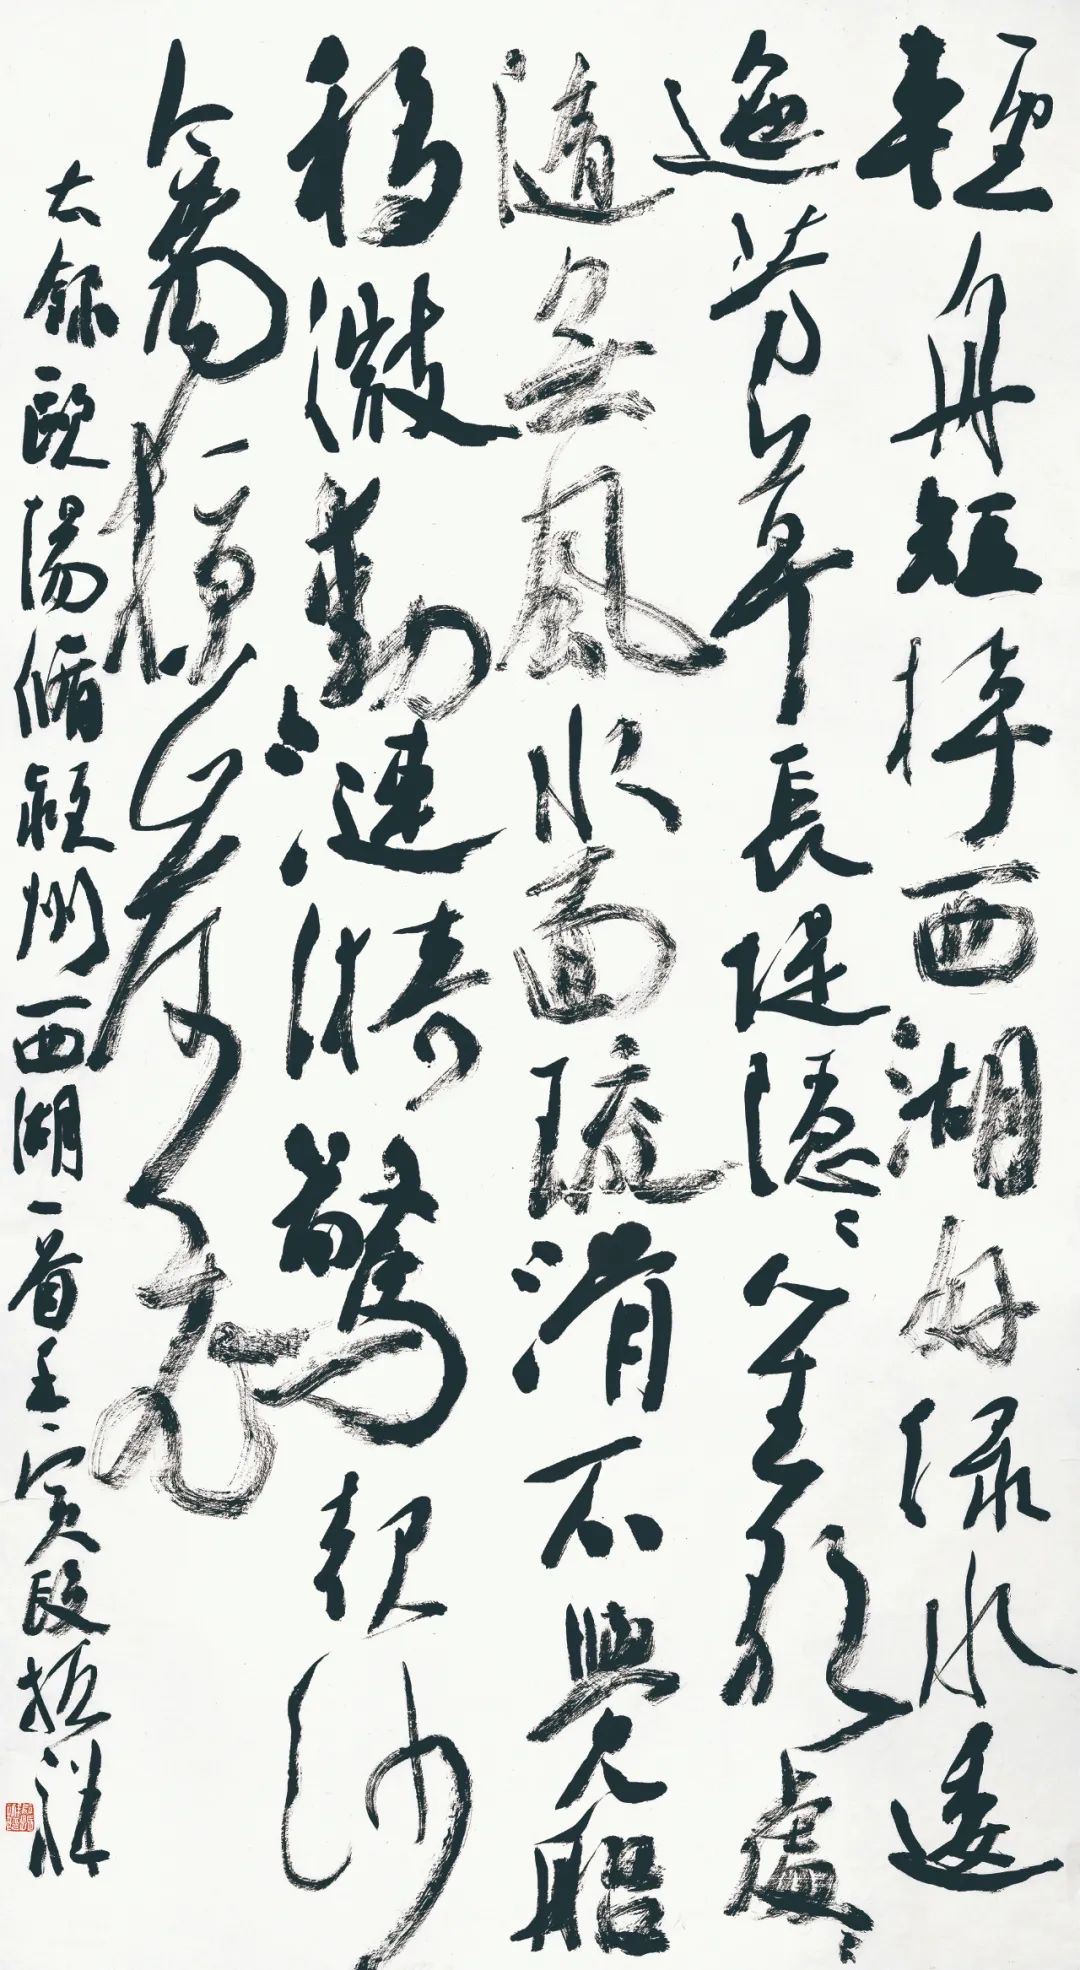 輕舟短棹西湖好綠水逶
迤芳草長堤隱〻笙歌處〻
隨無風水面琉滑不覺船
移微動漣漪驚起沙
禽掠岸飛
右錄歐陽脩潁州西湖一首壬寅段振祥